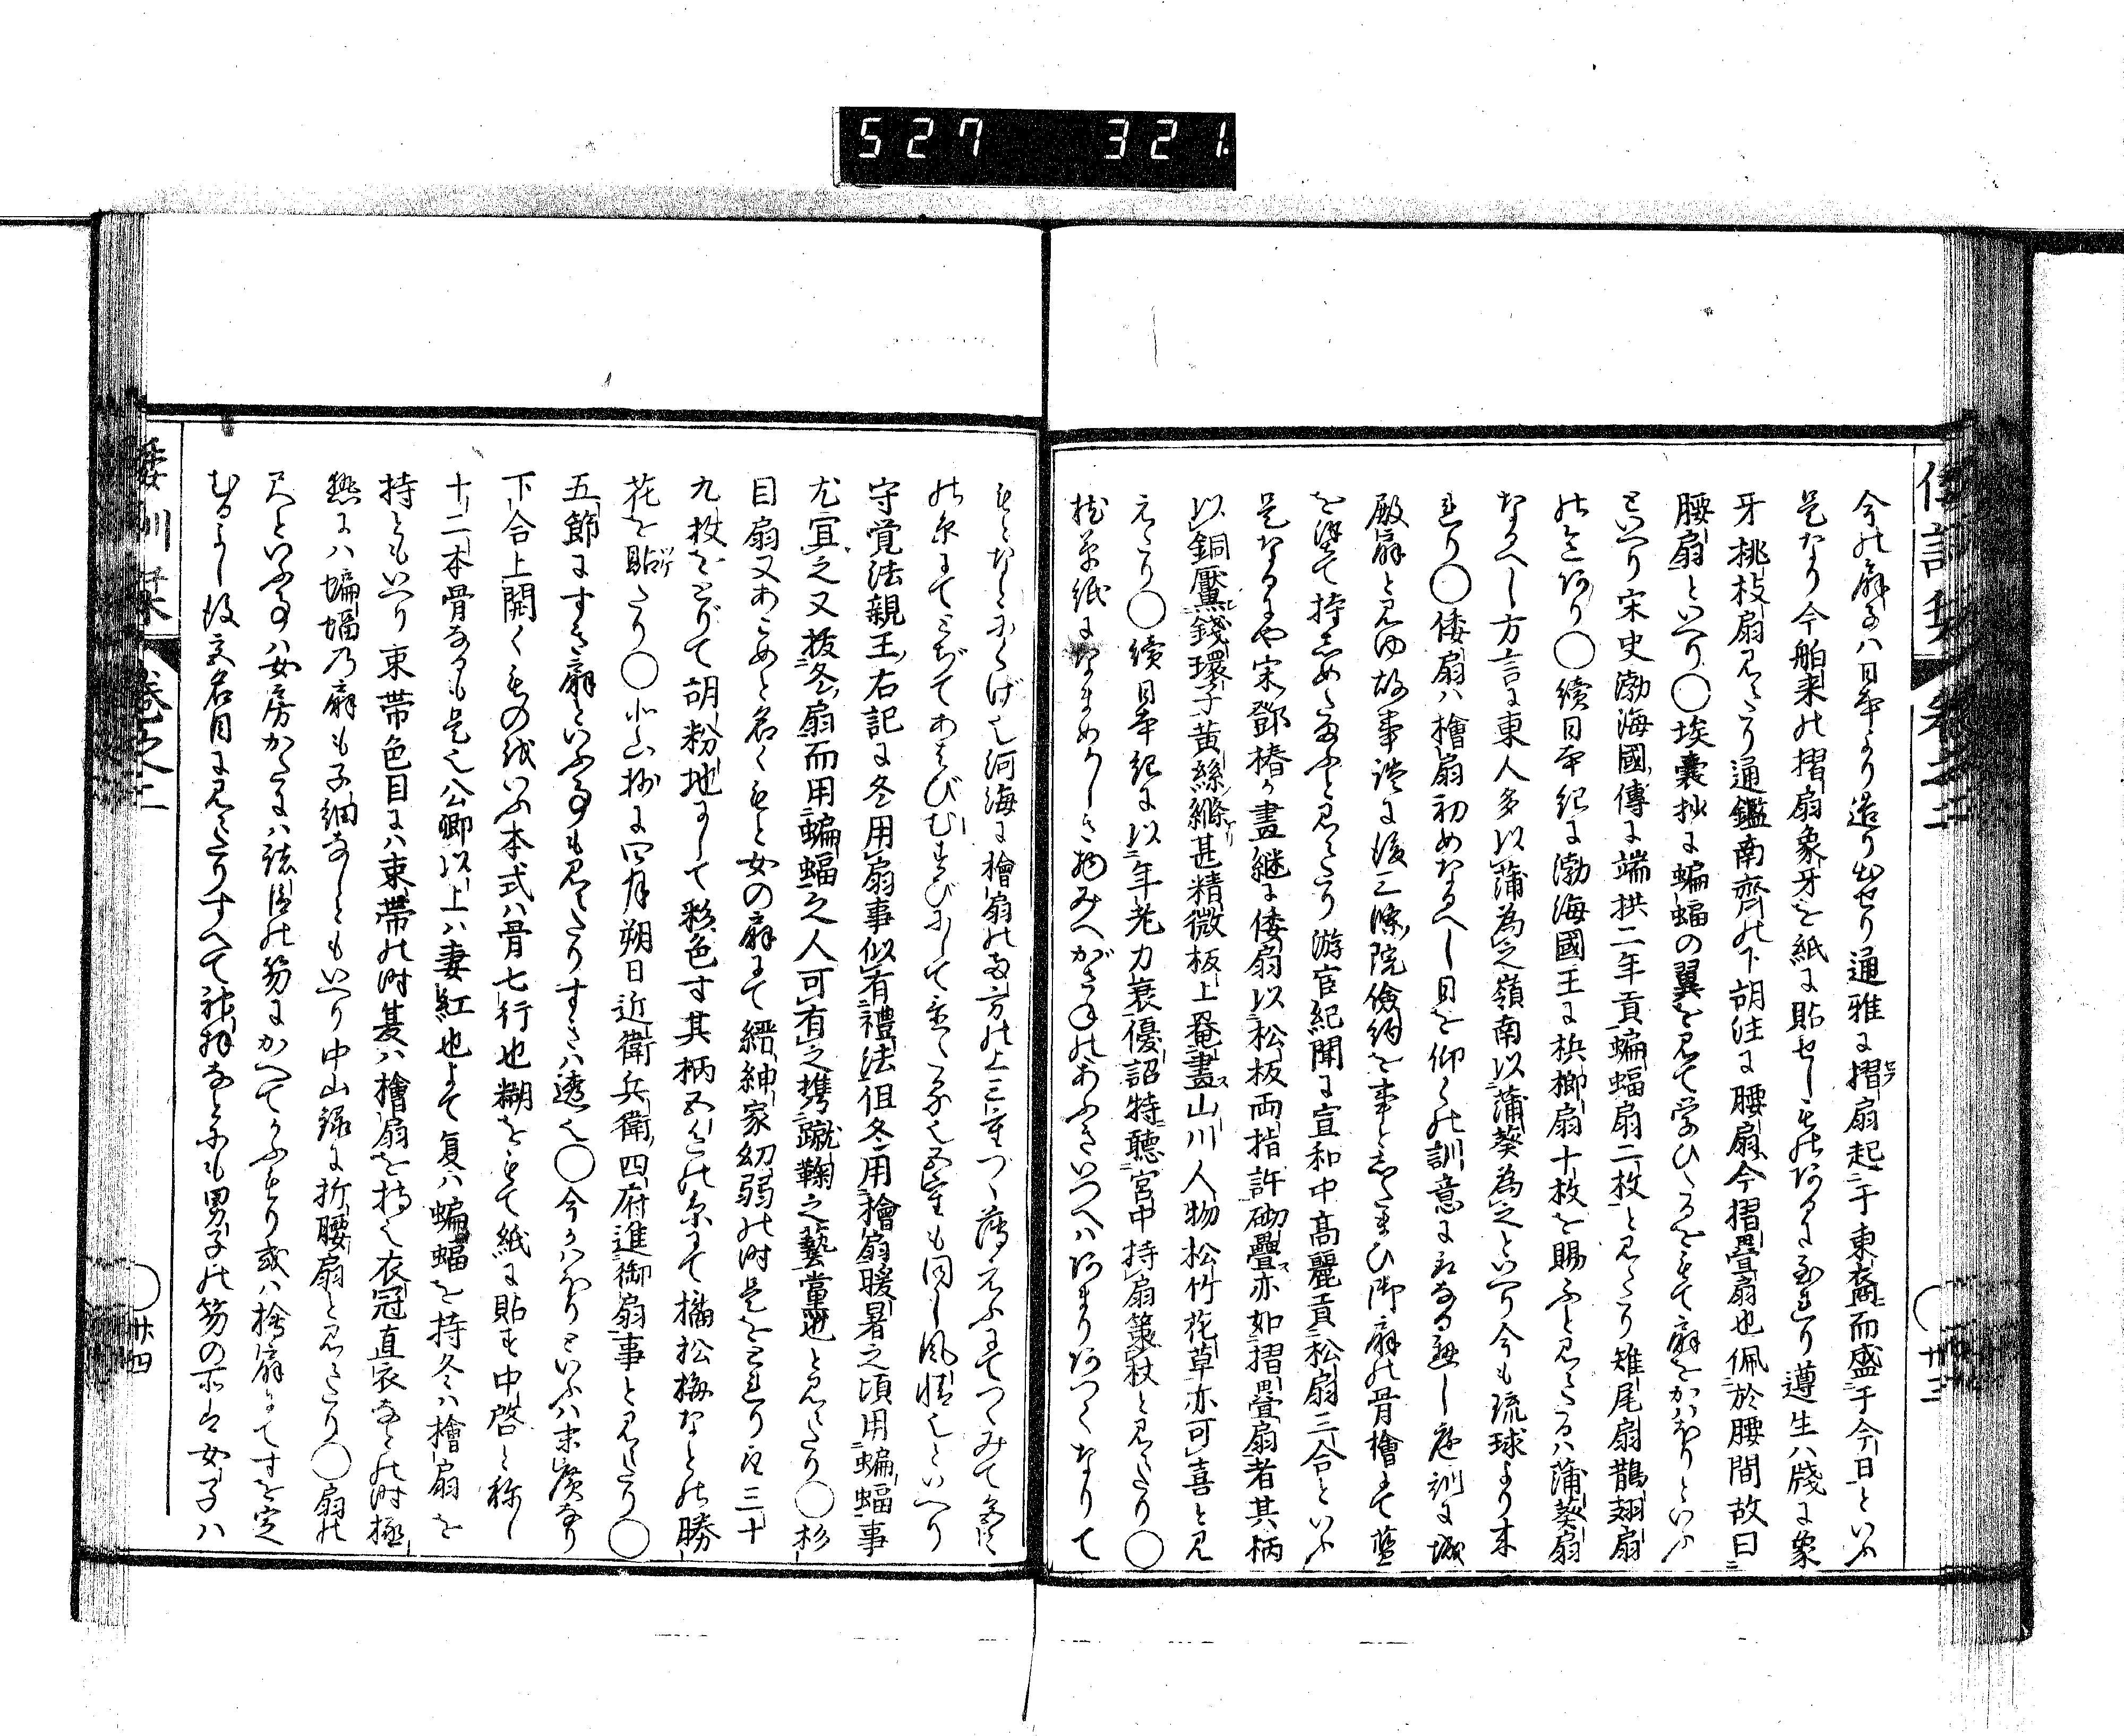 527 321
倭訓栞 巻之二 ○廿三
今の扇子ハ日本より造り出せり通雅に摺扇起于東裔而盛于今日といふ
是なり今舶来の摺扇象牙を紙に貼せしものあるに至れり遵生八牋に象
牙桃枝扇見えたり通鑑南齊の下胡注に腰扇今摺畳扇也佩於腰間故曰
腰扇といへり○埃嚢抄に蝙蝠の翼を見て学ひたるをもて扇をかハほりといふ
といへり宋史渤海國傳に端拱二年貢蝙蝠扇二枚と見えたり雉尾扇鵲翅扇
の名あり○續日本紀に渤海國王に檳榔扇十枚を賜ふと見えたるハ蒲葵扇
なるへし方言に東人多以蒲為之嶺南以蒲葵為之といへり今も琉球より来
れり○倭扇ハ檜扇初めなるへし目を仰くの訓意に
殿扇と見ゆ故事談に後三條院倹約を事としたまひ御扇の骨檜にて藍
を塗て持しめたまふと見えたり游宦紀聞に宣和中高麗貢松扇三合といふ
是なるにや宋鄧椿か畫継に倭扇以松板両指許砌疊亦如摺畳扇者其柄
以銅黶錢環子黄絲絛甚精微板上罨畫山川人物松竹花草亦可喜と見
えたり○續日本紀に以年老力衰優詔特聴宮中持扇策杖と見えたり○
桧薬紙になまめかしき物みへがさねのあふきいつへハあまりあつくなりて
もとなとにくげ也河海に檜扇の両方の上三重つゝ薄えふにてつゝみて色々
の糸にてとぢてあはびむすびにして置く事也五重も同し風情也といへり
守覚法親王右記に冬用扇事似有禮法但冬用檜扇暖暑之頃用蝙蝠事
尤宜之又抜冬扇而用蝙蝠之人可有之携蹴鞠之藝當也と見えたり○杉
目扇又あこめと名くもと女の扇にて縉紳家幼弱の時是をとれり
九枚をとぢて胡粉地にして彩色す其柄五色の糸にて橘松梅なとの勝
花を貼たり○北山抄に四月朔日近衛兵衛四府進御扇事と見えたり○
五節にすき扇といふ事も見えたりすきハ透也○今かハほりといふハ末廣なり
下合上開くもの をいふ本式ハ骨七行也糊をもて紙に貼を中啓と称し
十二本骨なるも是也公卿以上ハ妻紅也とて夏ハ蝙蝠を持冬ハ檜扇を
持ともいへり束帯色目にハ束帯の時夏ハ檜扇を持也衣冠直衣なとの時極
熱にハ蝙蝠乃扇も子細なしともいへり中山録に折腰扇と見えたり○扇の
尺といふ事ハ女房かたにハ法の笏にかへてかふもり或ハ檜扇にてすを定
むるよし故実名目に見えたりすへて神拝なとにも男子の笏の所を女子ハ
倭訓栞 巻之二 ○廿四